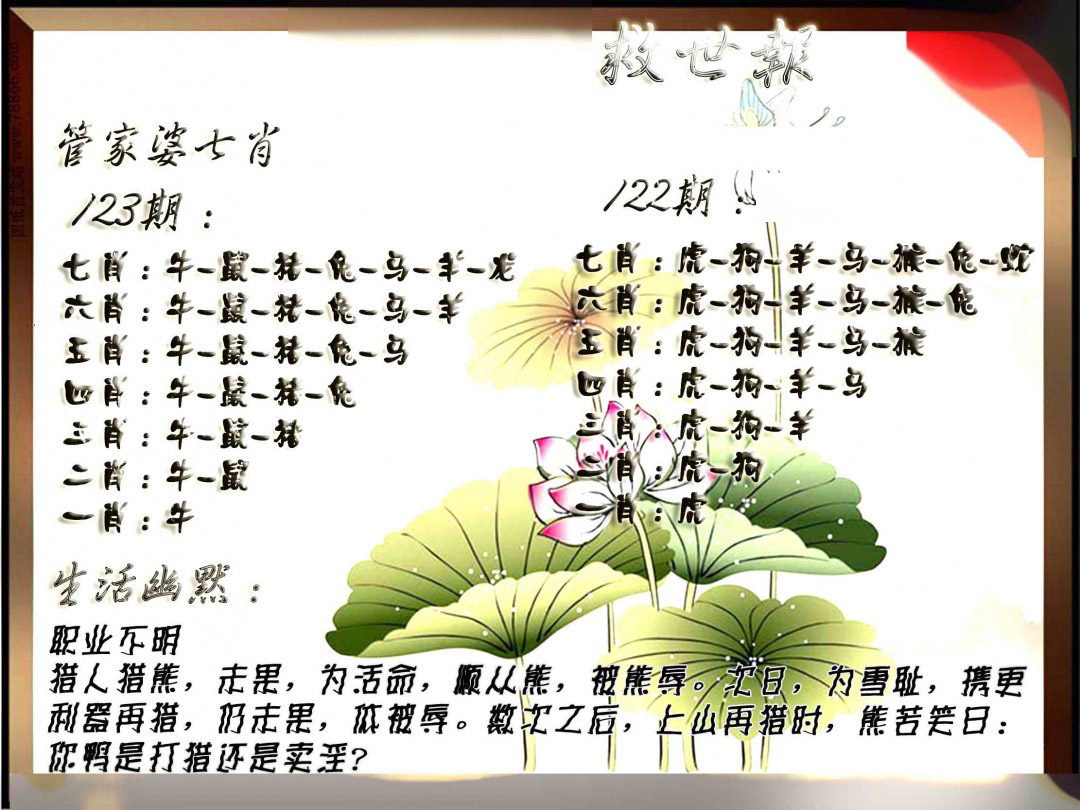 救世報
管家婆七肖
123期：
七肖：牛-鼠-猪-兔-马-羊-龙
六肖：牛-鼠-猪-兔-马-羊
五肖：牛-鼠-猪-兔-马
四肖：牛-鼠-猪-兔
三肖：牛-鼠-猪
二肖：牛-鼠
一肖：牛
122期：
七肖：虎-狗-羊-马-猴-兔-蛇
六肖：虎-狗-羊-马-猴-兔
五肖：虎-狗-羊-马-猴
四肖：虎-狗-羊-马
三肖：虎-狗-羊
二肖：虎-狗
一肖：虎
生活幽默：
职业不明
猎人猎熊，走果，为活命，顺从熊，被熊辱。次日，为雪耻，携更
利器再猎，仍走果，依被辱。数次之后，上山再猎时，熊苦笑曰：
你鸭是打猎还是卖淫？
www.78866.com